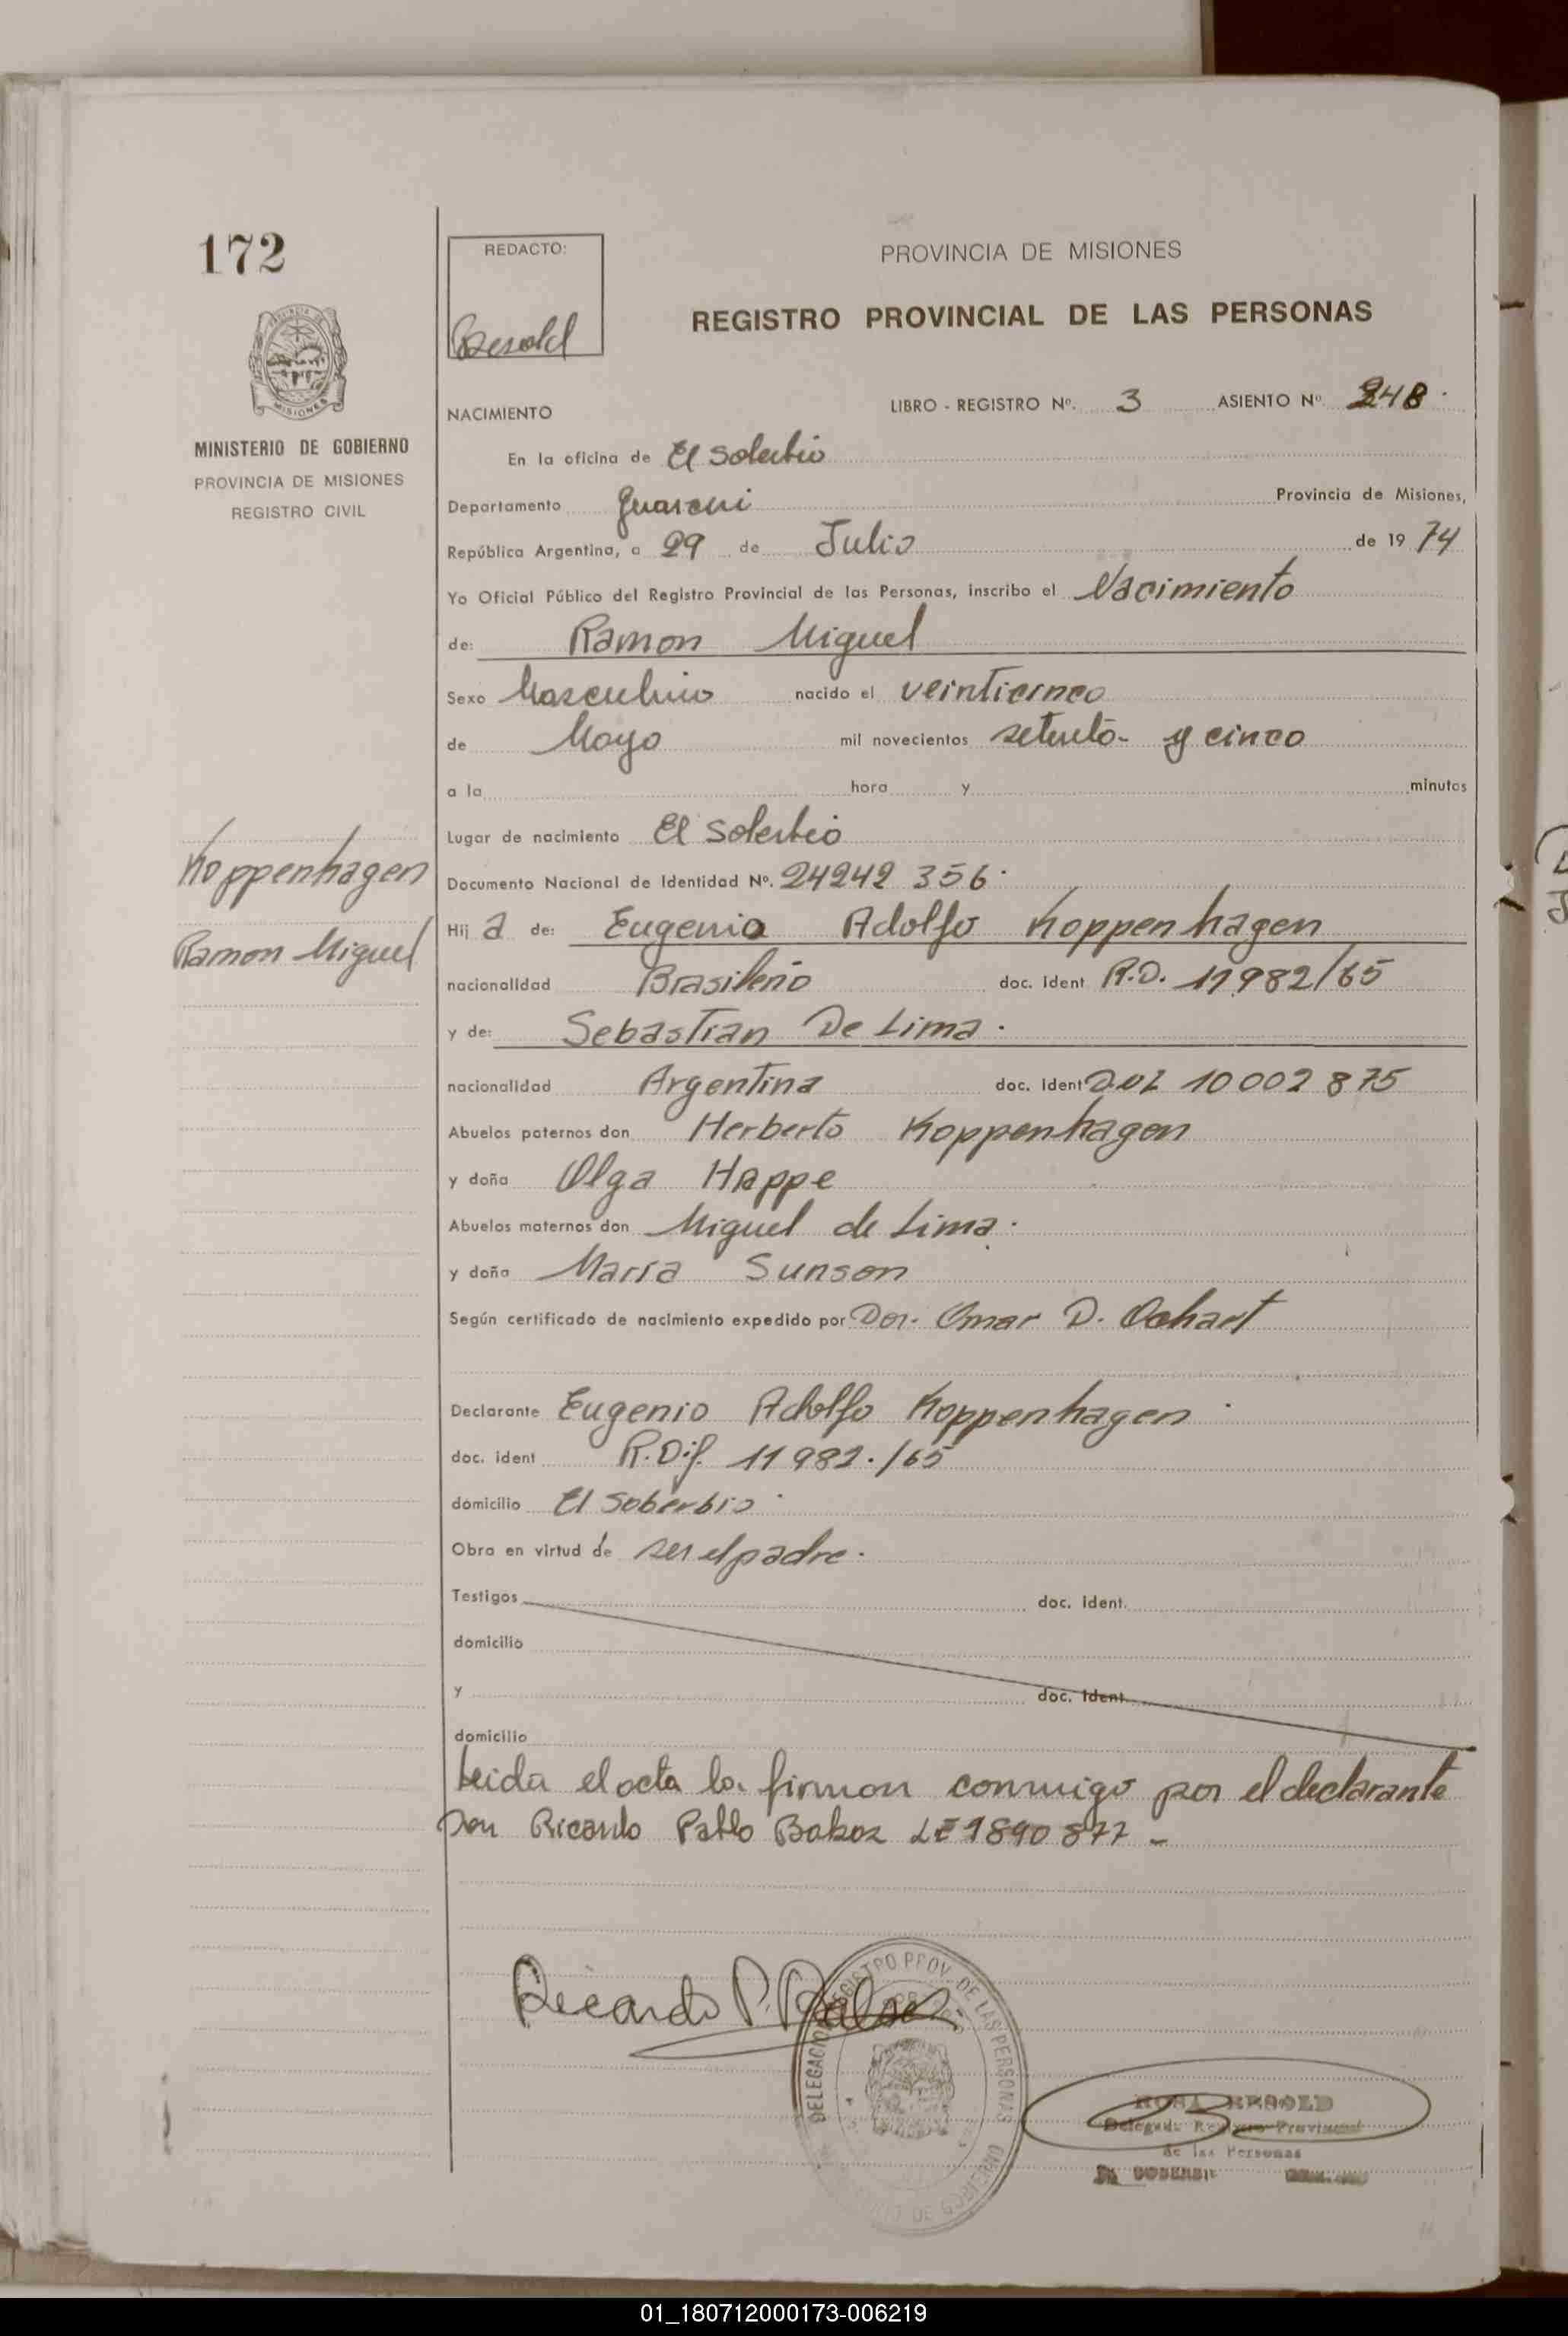 172
REDACTO:
Besold
PROVINCIA DE MISIONES
REGISTRO PROVINCIAL DE LAS PERSONAS
MISIONES
MINISTERIO DE GOBIERNO
PROVINCIA DE MISIONES
REGISTRO CIVIL
NACIMIENTO
LIBRO - REGISTRO Nº. 3 ASIENTO Nº 248
En la oficina de El Soberbio
Departamento Guarani Provincia de Misiones,
República Argentina, a 29 de Julio de 19 74
Yo Oficial Público del Registro Provincial de las Personas, inscribo el Nacimiento
de: Ramon Miguel
Sexo Masculino nacido el veinticinco
de Mayo mil novecientos setenta y cinco
a la hora y minutos
Lugar de nacimiento El Soberbio
Koppenhagen
Ramon Miguel
Documento Nacional de Identidad Nº. 24242 356.
Hij a de: Eugenio Adolfo Koppenhagen
nacionalidad Brasileño doc. ident R.D. 11982/65
y de: Sebastian De Lima.
nacionalidad Argentina doc. ident DNI 10 002 875
Abuelos paternos don Herberto Koppenhagen
y doña Olga Happe
Abuelos maternos don Miguel de Lima.
y doña María Sunson
Según certificado de nacimiento expedido por Dor. Omar D. Ochart
Declarante Eugenio Adolfo Koppenhagen
doc. ident R.Dif. 11982./65
domicilio El Soberbio
Obra en virtud de ser el padre.
Testigos doc. ident.
domicilio
y doc. ident.
domicilio
Leida el acta la firman conmigo por el declarante
Don Ricardo Pablo LE 1890 877 -
Ricardo P.
DELEGACION REGISTRO PROV. DE LAS PERSONAS
ROSA BESOLD
Delegada Registro Provincial
de las Personas
01_180712000173-006219